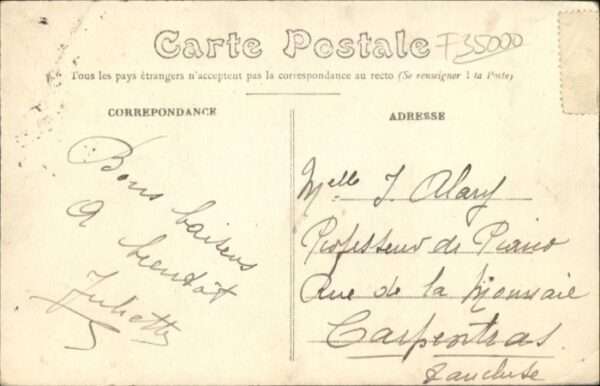 Carte Postale F35000
Tous les pays étrangers n'acceptent pas la correspondance au recto (Se renseigner à la Poste)
CORREPONDANCE
Bons baisers
A bientôt
Juliette
ADRESSE
Melle J. Alary
Professeur de Piano
Rue de la Monnaie
Carpentras
Vaucluse